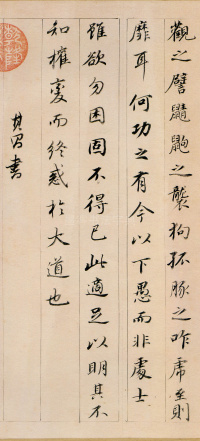 觀之譬鼱鼩之襲狗孤豚之咋虎至則
靡耳何功之有今以下愚而非處士
雖欲勿困固不得已此適足以明其不
知權變而終惑於大道也
其昌書